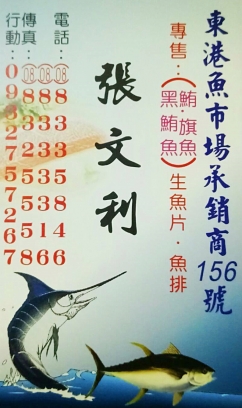 東港魚市場承銷商156號
專售：（鮪.旗魚
黑鮪魚）生魚片．魚排
張文利
電話：
傳真：
行動：